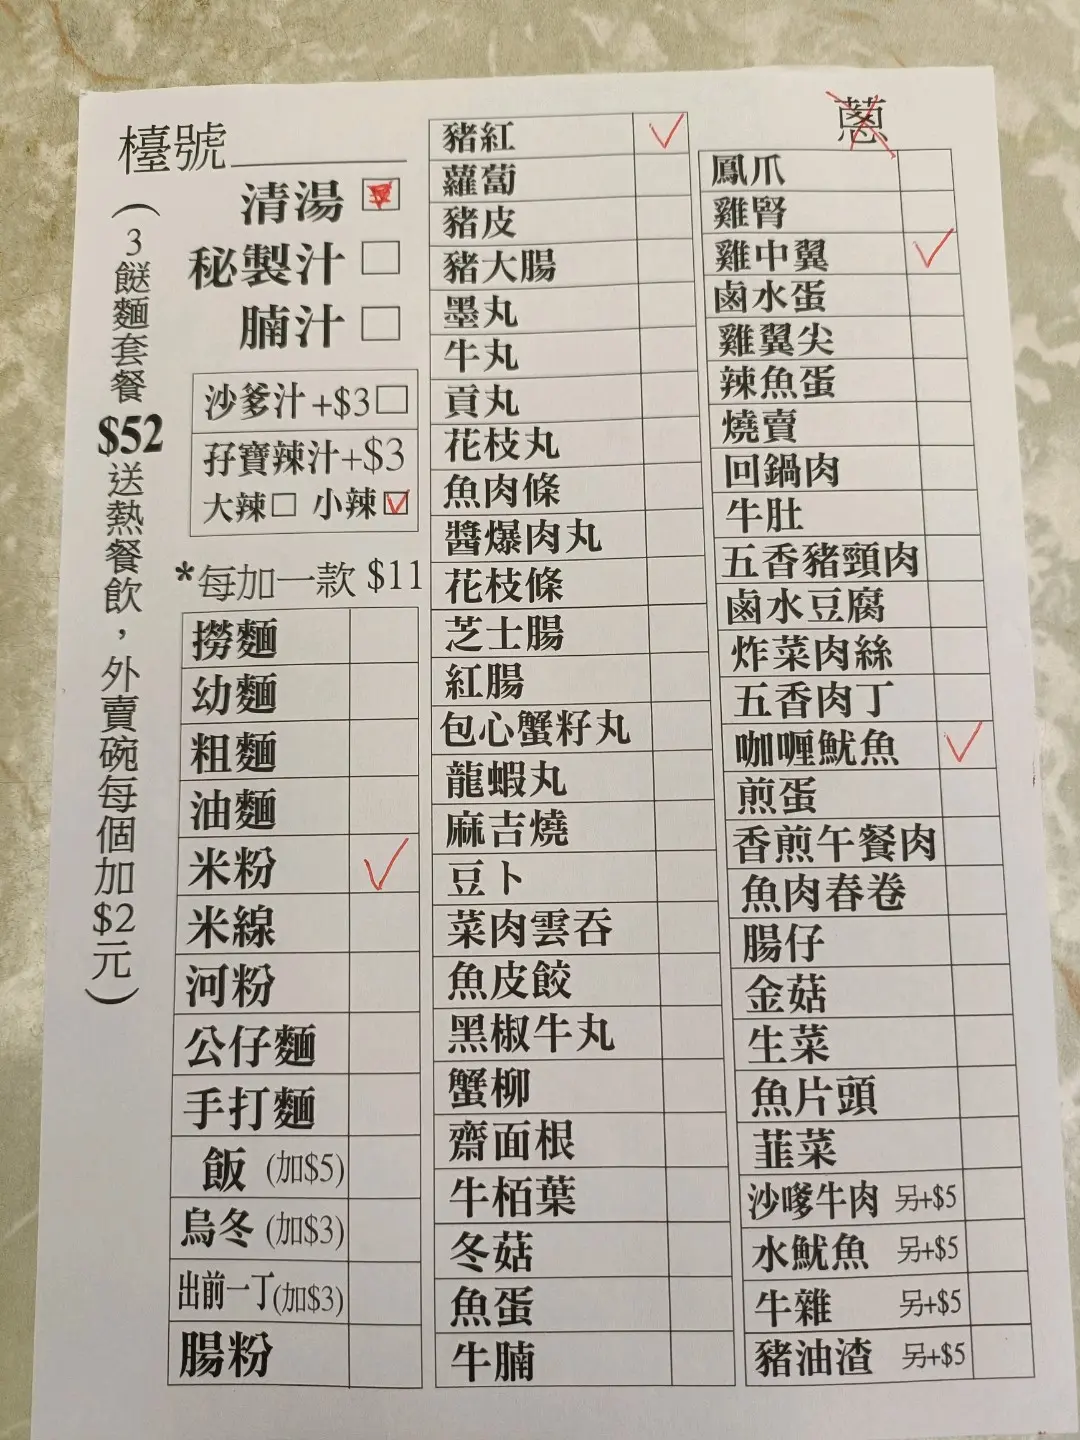 檯號
清湯
秘製汁
腩汁
(3餸麵套餐$52送熱餐飲，外賣碗每個加$2元)
沙爹汁+$3
孖寶辣汁+$3
大辣 小辣
*每加一款 $11
撈麵
幼麵
粗麵
油麵
米粉
米線
河粉
公仔麵
手打麵
飯 (加$5)
烏冬 (加$3)
出前一丁(加$3)
腸粉
豬紅
蘿蔔
豬皮
豬大腸
墨丸
牛丸
貢丸
花枝丸
魚肉條
醬爆肉丸
花枝條
芝士腸
紅腸
包心蟹籽丸
龍蝦丸
麻吉燒
豆卜
菜肉雲吞
魚皮餃
黑椒牛丸
蟹柳
齋面根
牛栢葉
冬菇
魚蛋
牛腩
蔥
鳳爪
雞腎
雞中翼
鹵水蛋
雞翼尖
辣魚蛋
燒賣
回鍋肉
牛肚
五香豬頸肉
鹵水豆腐
炸菜肉絲
五香肉丁
咖喱魷魚
煎蛋
香煎午餐肉
魚肉春卷
腸仔
金菇
生菜
魚片頭
韭菜
沙嗲牛肉 另+$5
水魷魚 另+$5
牛雜 另+$5
豬油渣 另+$5